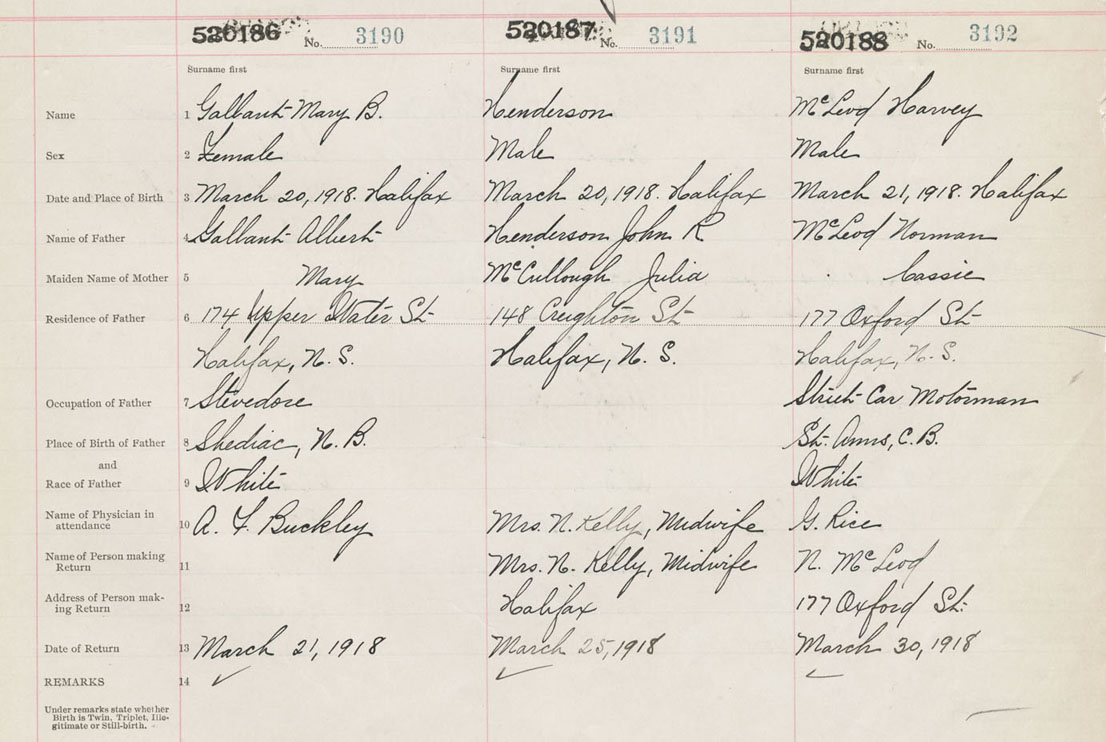 520186 No. 3190 520187 No. 3191 520188 No. 3192
Surname first Surname first Surname first
Name 1 Gallant Mary B. Henderson McLeod Harvey
Sex 2 Female Male Male
Date and Place of Birth 3 March 20, 1918. Halifax March 20, 1918. Halifax March 21, 1918. Halifax
Name of Father 4 Gallant Albert Henderson John R McLeod Norman
Maiden Name of Mother 5 Mary McCullough Julia Cassie
Residence of Father 6 174 Upper Water St 148 Creighton St 177 Oxford St
Halifax, N. S. Halifax, N. S. Halifax, N. S.
Occupation of Father 7 Stevedore Street Car Motorman
Place of Birth of Father 8 Shediac, N. B. St. Anns, C. B.
and
Race of Father 9 White White
Name of Physician in
attendance 10 A. F. Buckley Mrs. N. Kelly, Midwife G. Rice
Name of Person making
Return 11 Mrs. N. Kelly, Midwife N. McLeod
Address of Person mak-
ing Return 12 Halifax 177 Oxford St.
Date of Return 13 March 21, 1918 March 25, 1918 March 30, 1918
REMARKS 14
Under remarks state whether
Birth is Twin, Triplet, Ille-
gitimate or Still-birth.